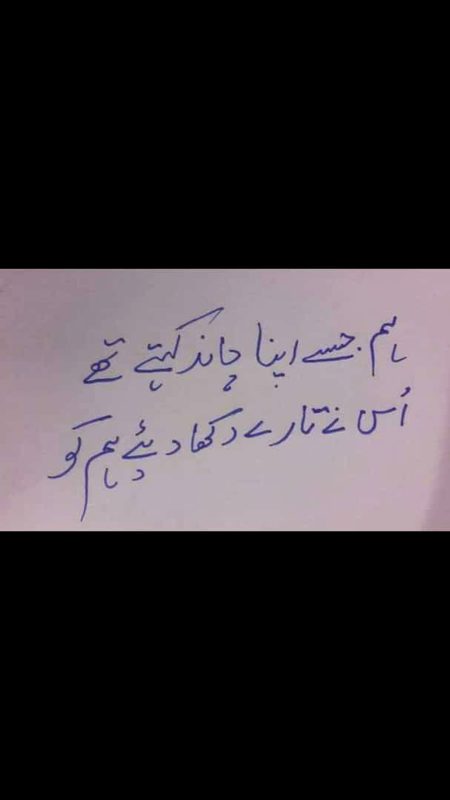 ہم جسے اپنا چاند کہتے تھے
اُس نے تارے دکھا دیئے ہم کو